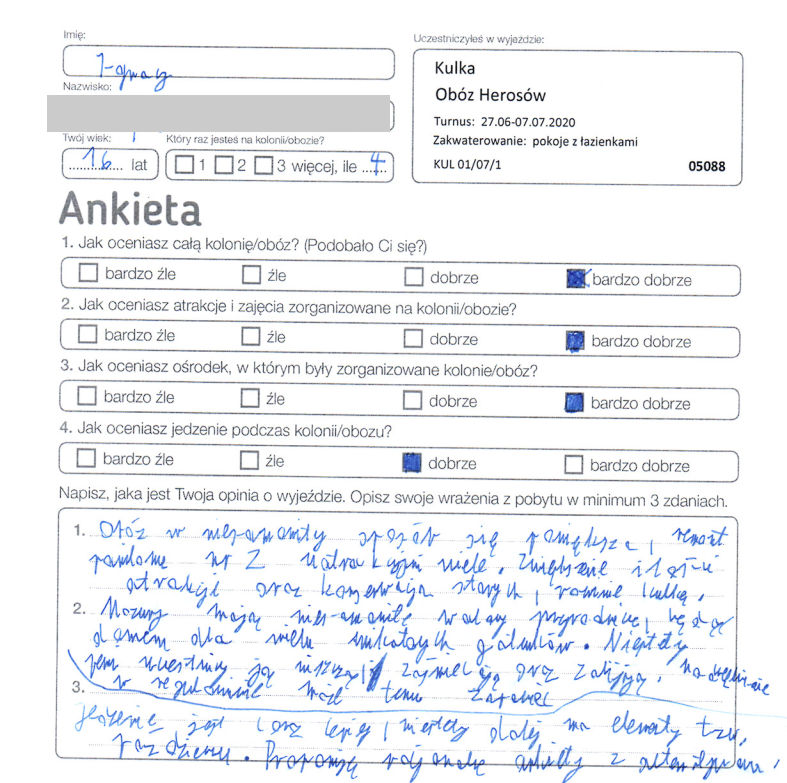 Imię:
Ignacy
Nazwisko:
Twój wiek:
Który raz jesteś na kolonii/obozie?
16 lat
1 2 3 więcej, ile 4
Uczestniczyłeś w wyjeździe:
Kulka
Obóz Herosów
Turnus: 27.06-07.07.2020
Zakwaterowanie: pokoje z łazienkami
KUL 01/07/1 05088
Ankieta
1. Jak oceniasz całą kolonię/obóz? (Podobało Ci się?)
bardzo źle źle dobrze bardzo dobrze
2. Jak oceniasz atrakcje i zajęcia zorganizowane na kolonii/obozie?
bardzo źle źle dobrze bardzo dobrze
3. Jak oceniasz ośrodek, w którym były zorganizowane kolonie/obóz?
bardzo źle źle dobrze bardzo dobrze
4. Jak oceniasz jedzenie podczas kolonii/obozu?
bardzo źle źle dobrze bardzo dobrze
Napisz, jaka jest Twoja opinia o wyjeździe. Opisz swoje wrażenia z pobytu w minimum 3 zdaniach.
1. Obóz w niesamowity sposób się powiększa, remont
pawilonu nr 2 wiele.
atrakcji oraz konserwacja starych,
2. Mazury mają niesamowite walory przyrodnicze, będąc
domem dla wielu gatunków. Niestety
ją oraz zabijają.
3. w regulaminie temu
Jedzenie jest coraz lepiej, niestety dalej ma elementy tzw.
Proponuję z